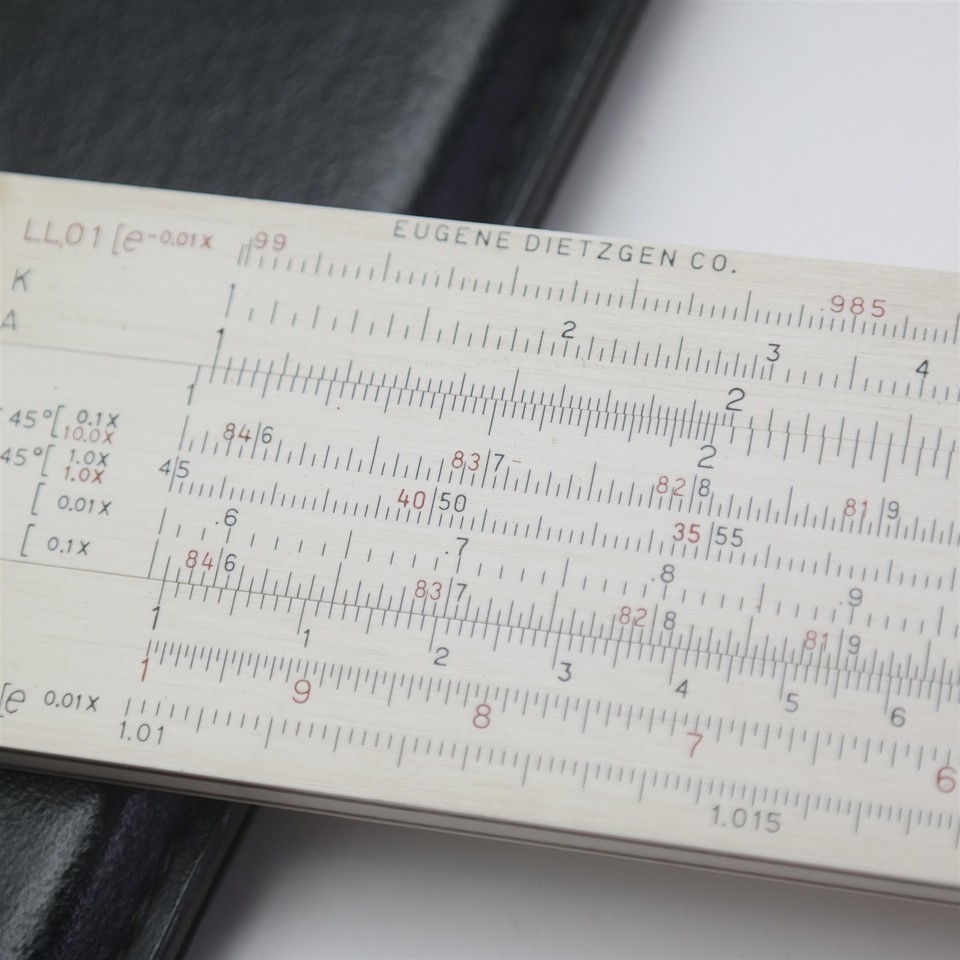 EUGENE DIETZGEN CO.
LL01 [e-0.01X .99 .985
K 1 2 3 4
A 1 2
1 2
45°[ 0.1X 10.0X 84|6 83|7 82|8 81|9
45°[ 1.0X 1.0X 4|5 40|50 35|55
[ 0.01X .6 .7 .8 .9
[ 0.1X 84|6 83|7 82|8 81|9
1 1 2 3 4 5 6
1 9 8 7 6
[e 0.01X
1.01 1.015